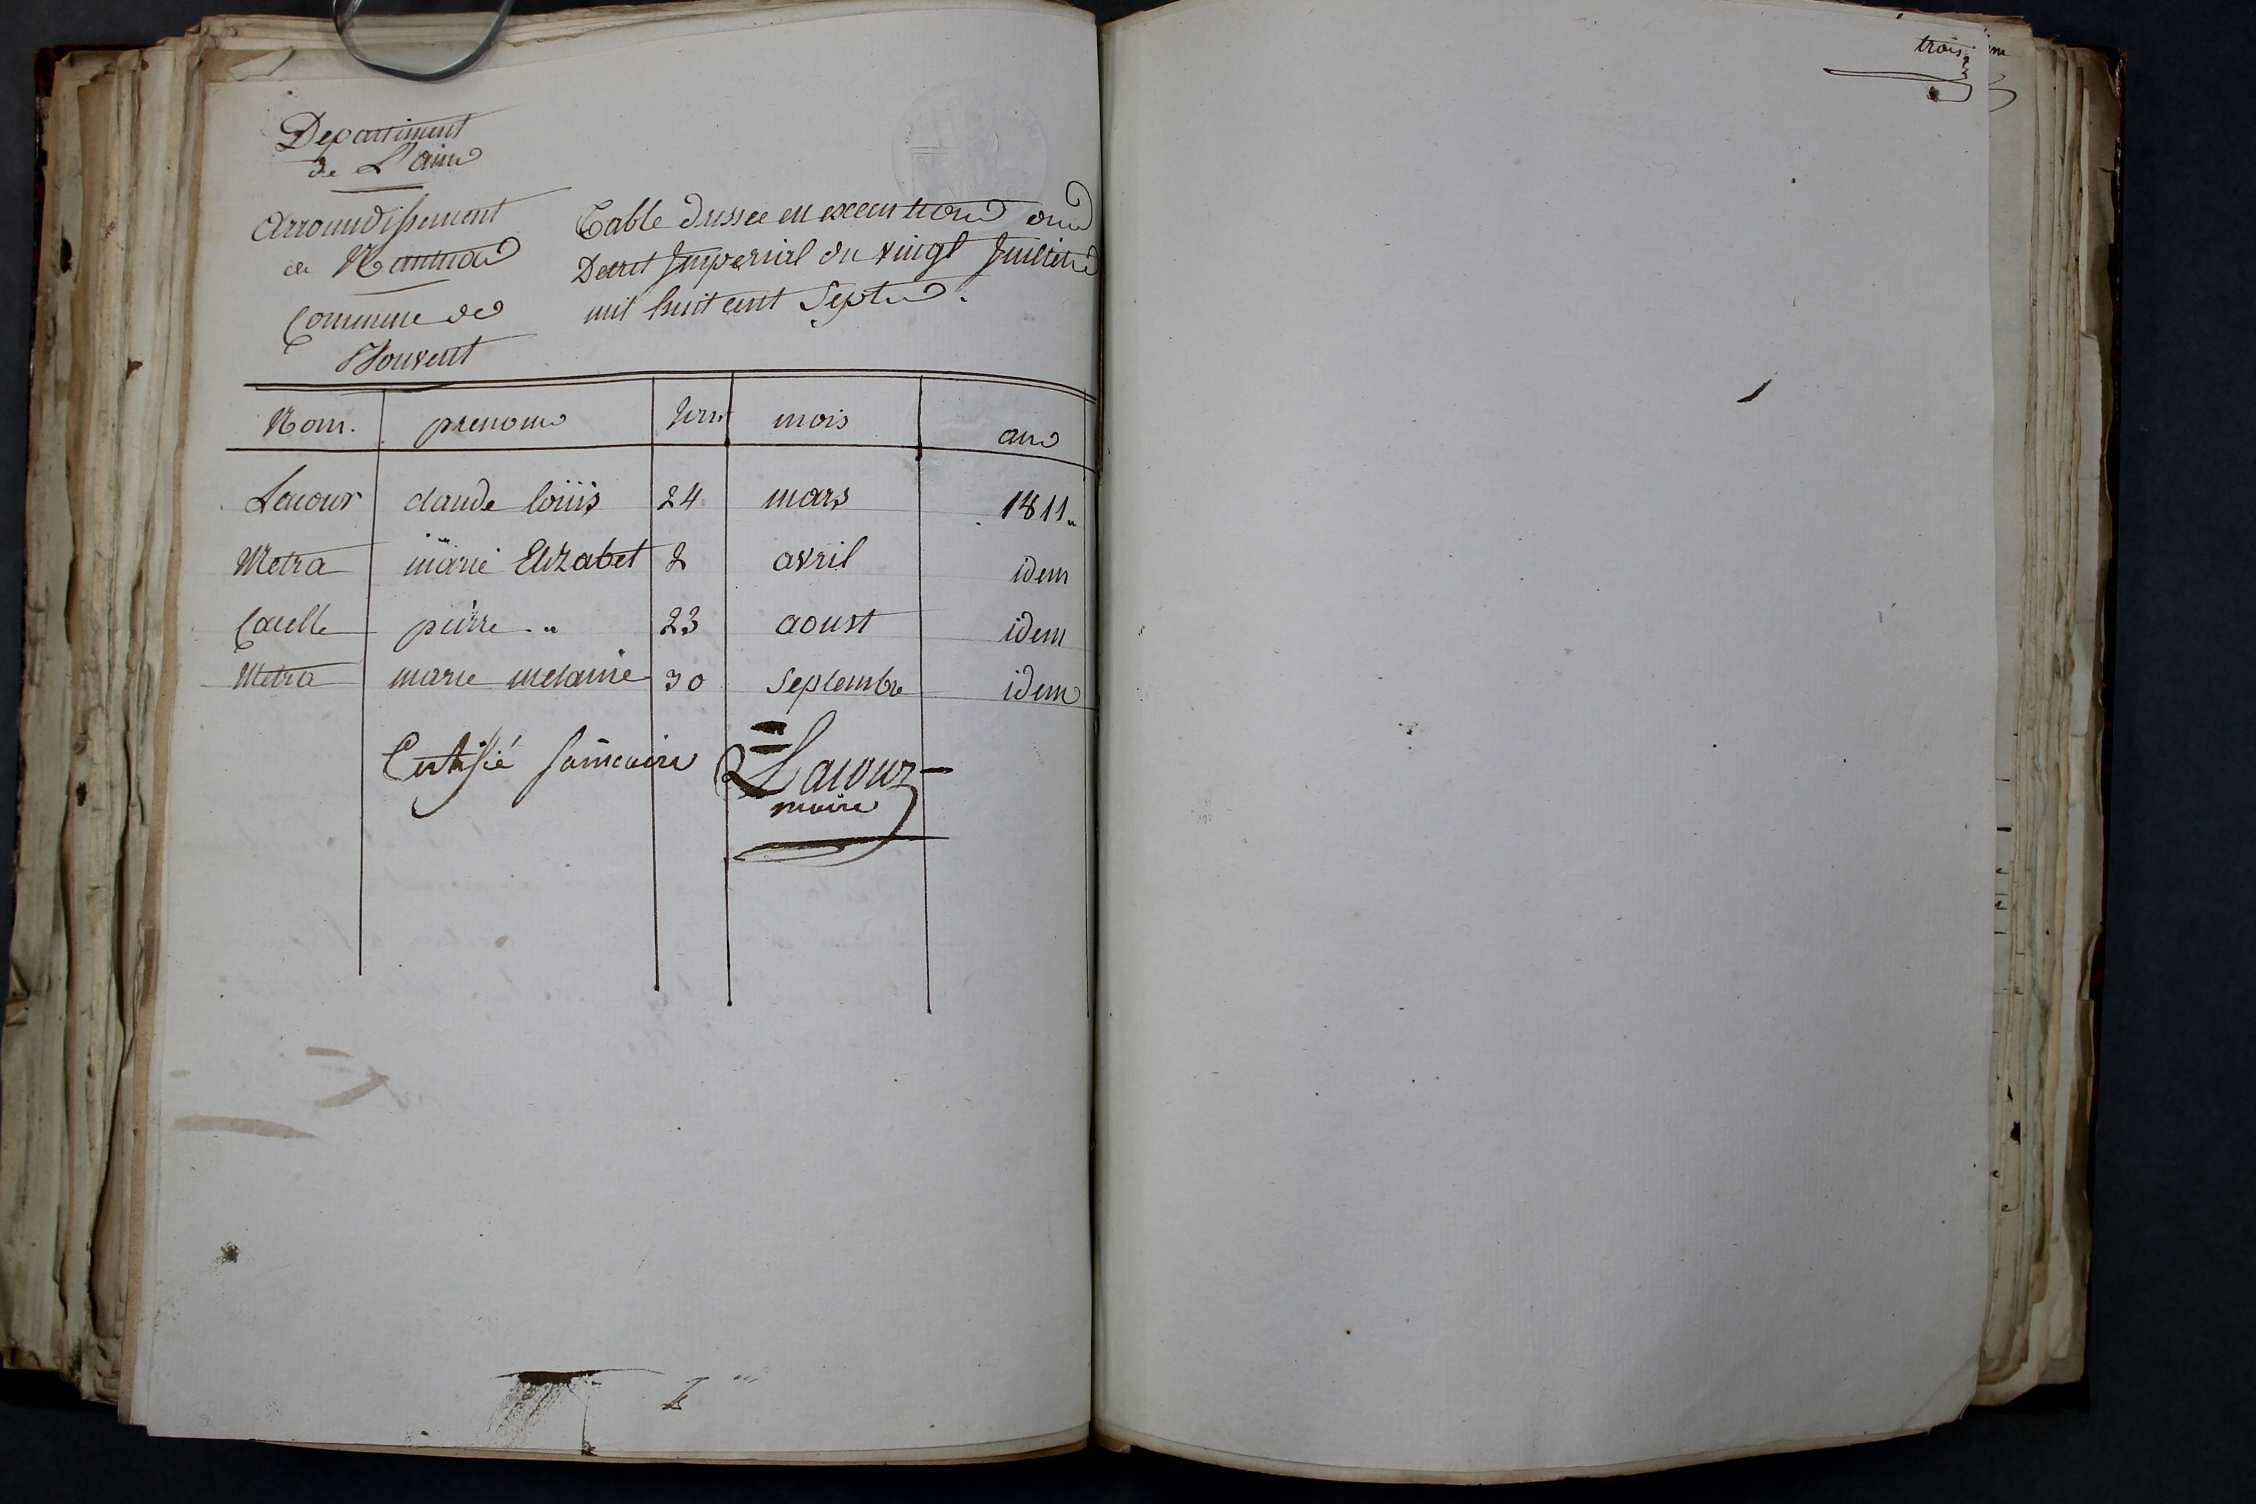 Departiment
de L'ain
arroundissement
de Nantua
Commune de
Table dressee en execution du
Decret Imperial du vingt Juillet
mil huit cent Sept.
Nom. prenom mois an
Lacour claude loüis 24 mars 1811
Metra marie Elizabet 2 avril idem
Carelle pierre 23 aoust idem
Metra marie melanie 30 septembre idem
Certifié
Lacour
maire
trois